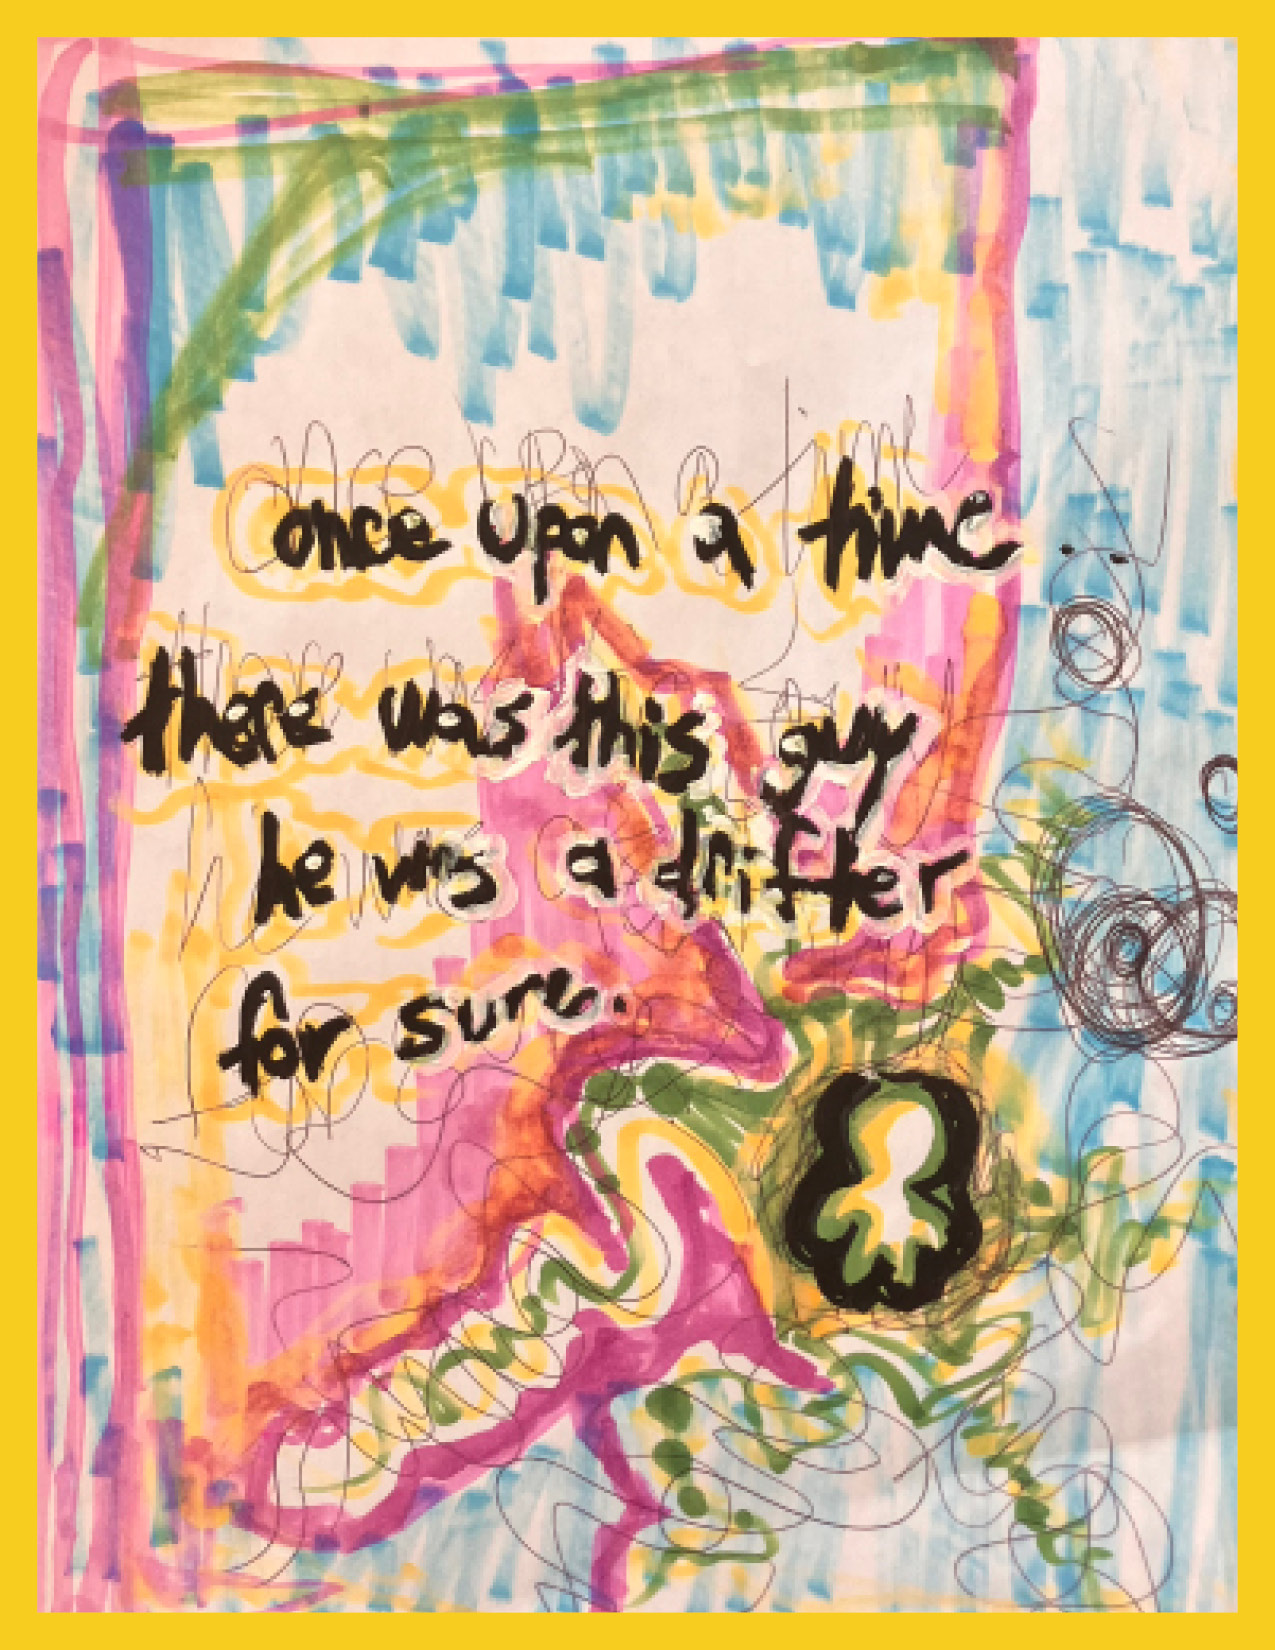 once upon a time
there was this guy
he was a drifter
for sure.